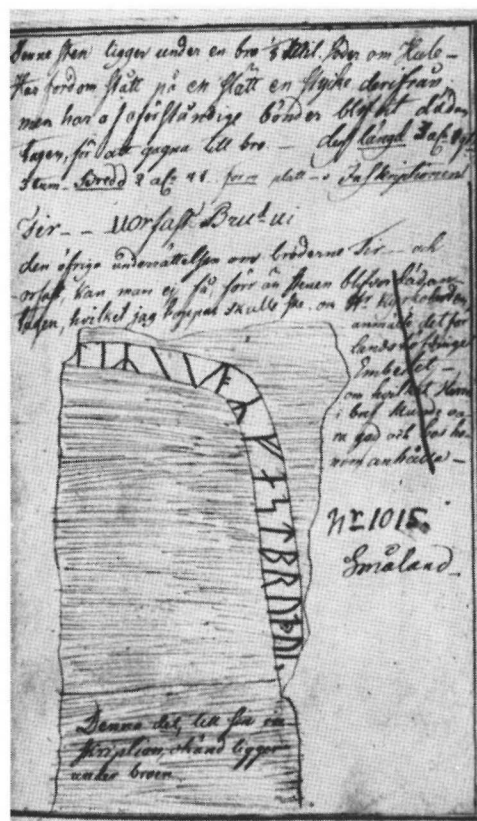 Denne sten ligger under en bro mil. söder om Hule-
Har fordom stått på en slätt en stycke derifrån.
men har af oförståndige bönder blifvit dädan
tagen, för att gagna till bro - dess längd 3 al: 9
3 tum. Bredd 2 al: form platt - Inskriptionen
Tir - - uorfast Brudui
den öfrige underrättelsen om bröderne Tir - - och
orfast, kan man ej få förr än stenen blifver dädan-
tagen, hvilket jag hoppas skulle ske, om Hr Kyrkoherden
anmälte det för
landshöfdinge
Embetet -
om hvilket Herren
i bref
god och hos ho-
nom anhålla -
ᛒᚱᚢᚦᚢᛁ
No 1015.
Småland.
Denna del, till sin in-
skription, okänd ligger
under broen.